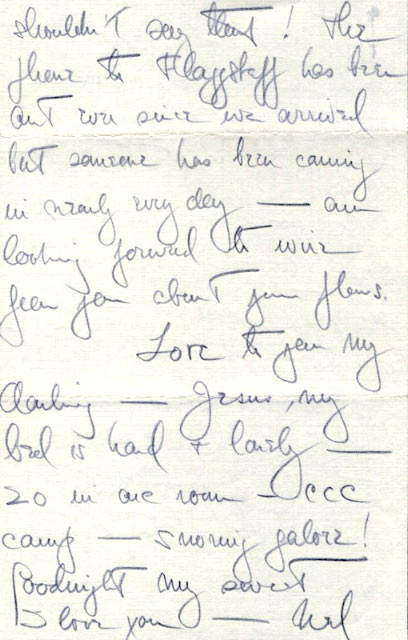 shouldn't say that! The
phone to Flaggstaff has been
out ever since we arrived
but someone has been coming
in nearly every day — am
looking forward to wire
from you about your plans.
Love to you my
darling — Jesus, my
bed is hard & lonely —
20 in one room — CCC
camp — snoring galore!
Goodnight my sweet
I love you —